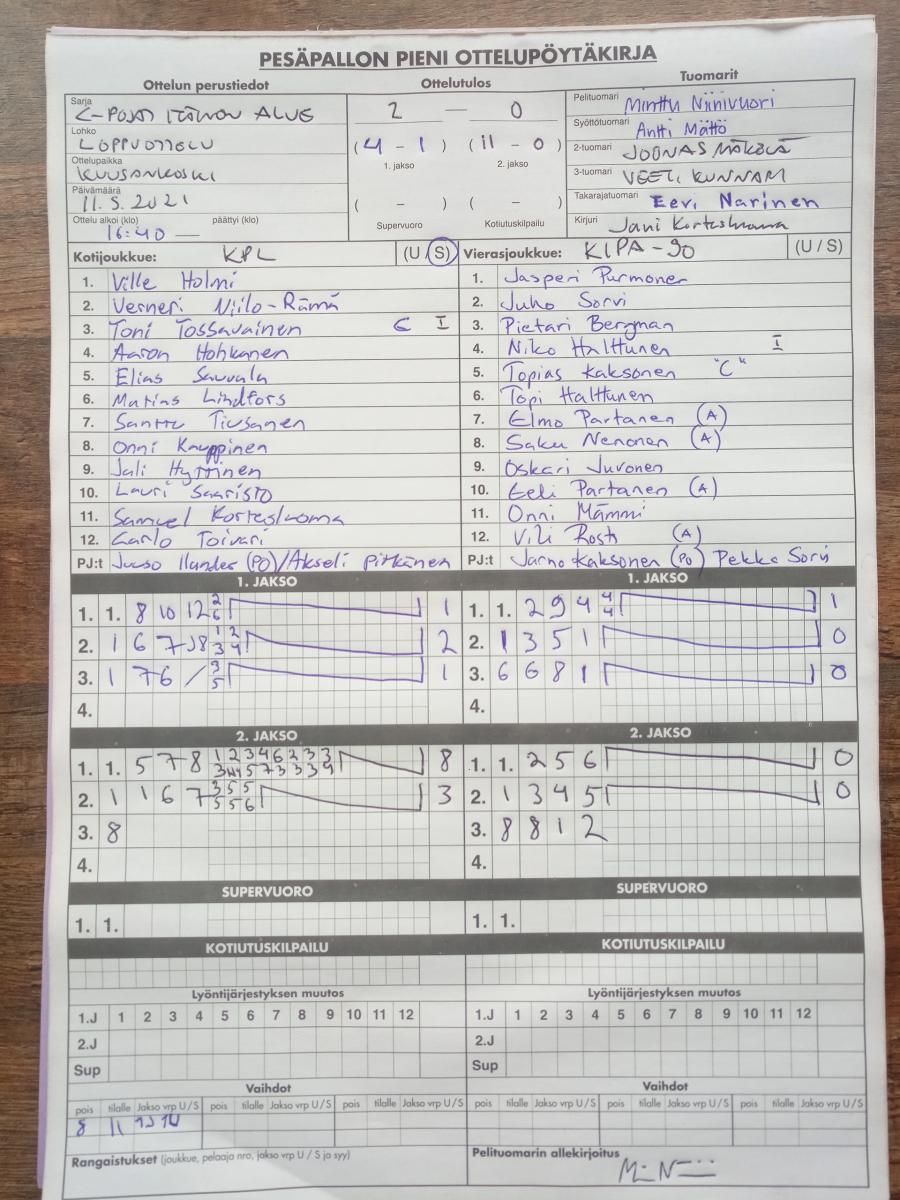 PESÄPALLON PIENI OTTELUPÖYTÄKIRJA
Ottelun perustiedot
Sarja
C-POJAT ITÄINEN ALUE
Lohko
LOPPUOTTELU
Ottelupaikka
KUUSANKOSKI
Päivämäärä
11.5.2021
Ottelu alkoi (klo) päättyi (klo)
16:40 —
Ottelutulos
2 — 0
(4 - 1) (11 - 0)
1. jakso 2. jakso
( - ) ( - )
Supervuoro Kotiutuskilpailu
Tuomarit
Pelituomari Minttu Niinivuori
Syöttötuomari Antti Mättö
2-tuomari JOONAS MÄKELÄ
3-tuomari VEETI KUNNARI
Takarajatuomari Eevi Narinen
Kirjuri Jani Kortesluoma
Kotijoukkue: KPL (U / S)
1. Ville Holmi
2. Verneri Niilo-Rämä
3. Toni Tossavainen C I
4. Aaron Hohkanen
5. Elias Sauvala
6. Matias Lindfors
7. Santtu Tiusanen
8. Onni Kauppinen
9. Jali Hyttinen
10. Lauri Saaristo
11. Samuel Kortesluoma
12. Carlo Toivari
PJ:t Juuso Ilander (PO)/Akseli Pitkänen
Vierasjoukkue: KIPA-90 (U / S)
1. Jasperi Purmonen
2. Juho Sorvi
3. Pietari Bergman
4. Niko Halttunen I
5. Topias Kaksonen "C"
6. Topi Halttunen
7. Elmo Partanen (A)
8. Saku Nenonen (A)
9. Oskari Juvonen
10. Eeli Partanen (A)
11. Onni Mämmi
12. Vili Rosti (A)
PJ:t Jarno Kaksonen (PO) Pekka Sorvi
1. JAKSO
1. 1. 8 10 12 2 1
6
2. 1 6 7 8 1 2 2
3 4
3. 1 7 6 / 3 1
5
4.
1. JAKSO
1. 1. 2 9 4 4 1
4
2. 1 3 5 1 0
3. 6 6 8 1 0
4.
2. JAKSO
1. 1. 5 7 8 1 2 3 4 6 2 3 3 8
3 4 5 7 3 3 3 4
2. 1 1 6 7 3 5 5 3
5 5 6
3. 8
4.
2. JAKSO
1. 1. 2 5 6 0
2. 1 3 4 5 0
3. 8 8 1 2
4.
SUPERVUORO
1. 1.
SUPERVUORO
1. 1.
KOTIUTUSKILPAILU
KOTIUTUSKILPAILU
Lyöntijärjestyksen muutos
1.J 1 2 3 4 5 6 7 8 9 10 11 12
2.J
Sup
Lyöntijärjestyksen muutos
1.J 1 2 3 4 5 6 7 8 9 10 11 12
2.J
Sup
Vaihdot
pois tilalle Jakso vrp U / S pois tilalle Jakso vrp U / S pois tilalle Jakso vrp U / S
8 11
Vaihdot
pois tilalle Jakso vrp U / S pois tilalle Jakso vrp U / S pois tilalle Jakso vrp U / S
Rangaistukset (joukkue, pelaaja nro, jakso vrp U / S ja syy)
Pelituomarin allekirjoitus